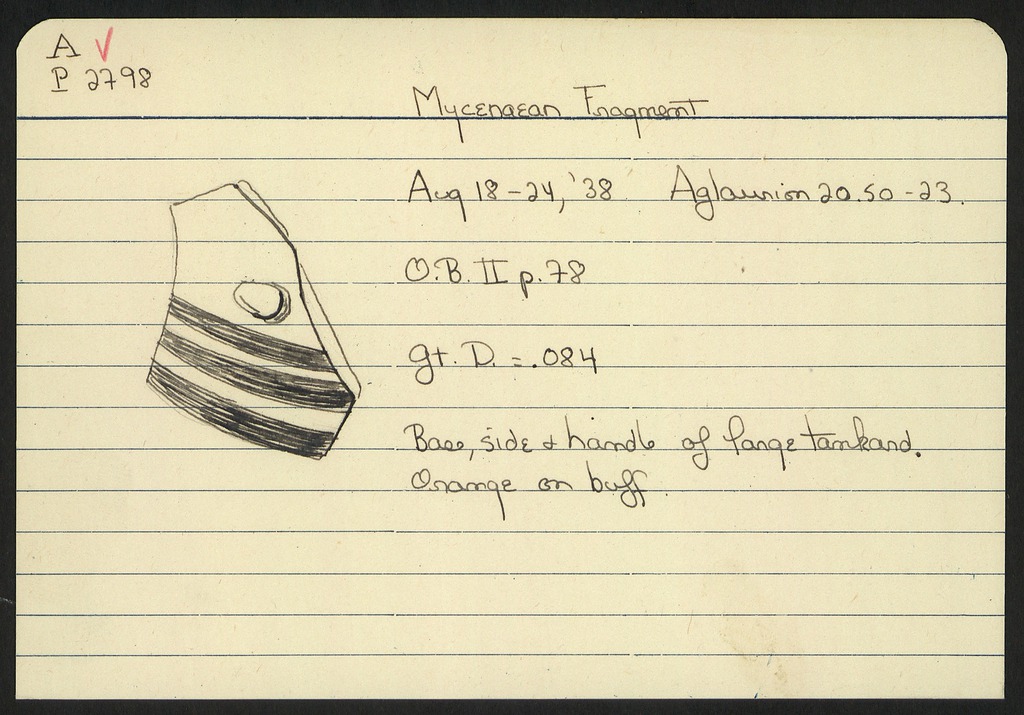 A ✓
P 2798
Mycenaean Fragment
Aug 18-24, '38 Aglaurion 20.50-23.
O.B. II p. 78
gt. D. = .084
Base, side & handle of large tankard.
Orange on buff